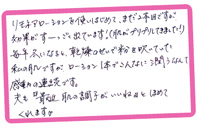 リモネアローションを使いはじめて、まだ2本目ですが
効果がすーっごく出ています!(肌がプリプリしてきました!!)
毎年冬になると、乾燥のせいで粉を吹いていた
私の肌ですが ローション1本でこんなに潤うなんて
感動の連続です。
夫も「最近、肌の調子がいいね」と ほめて
くれますヶ